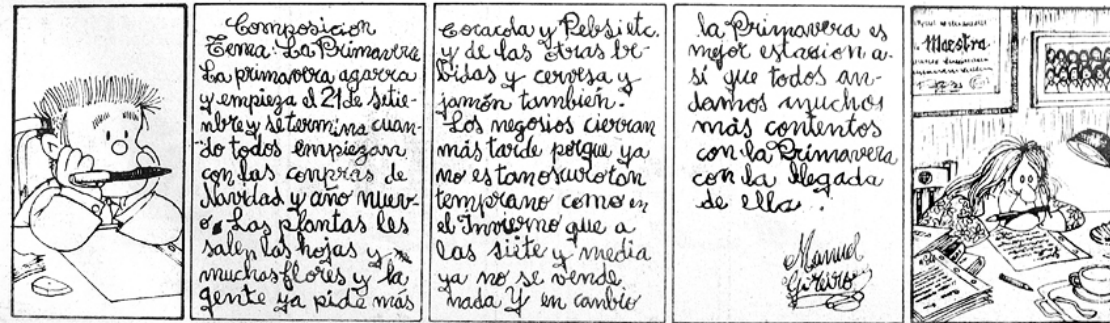 Composicion
Tema: La Primavera
La primavera agarra
y empieza el 21 de Setie-
nbre y se termina cuan-
do todos empiezan
con las conpras de
Navidad y año nuev-
o. Las plantas les
salen las hojas y
muchas flores y la
gente ya pide más
Cocacola y Pebsi etc.
y de las otras be-
bidas y cervesa y
jamón también.
Los negosios cierran
más tarde porque ya
no es tan oscuro tan
temprano como en
el Invierno que a
las siete y media
ya no se vende
nada Y en cambio
la Primavera es
mejor estasion a-
sí que todos an-
damos muchos
más contentos
con la Primavera
con la llegada
de ella.
Manuel
Goreiro
Maestra